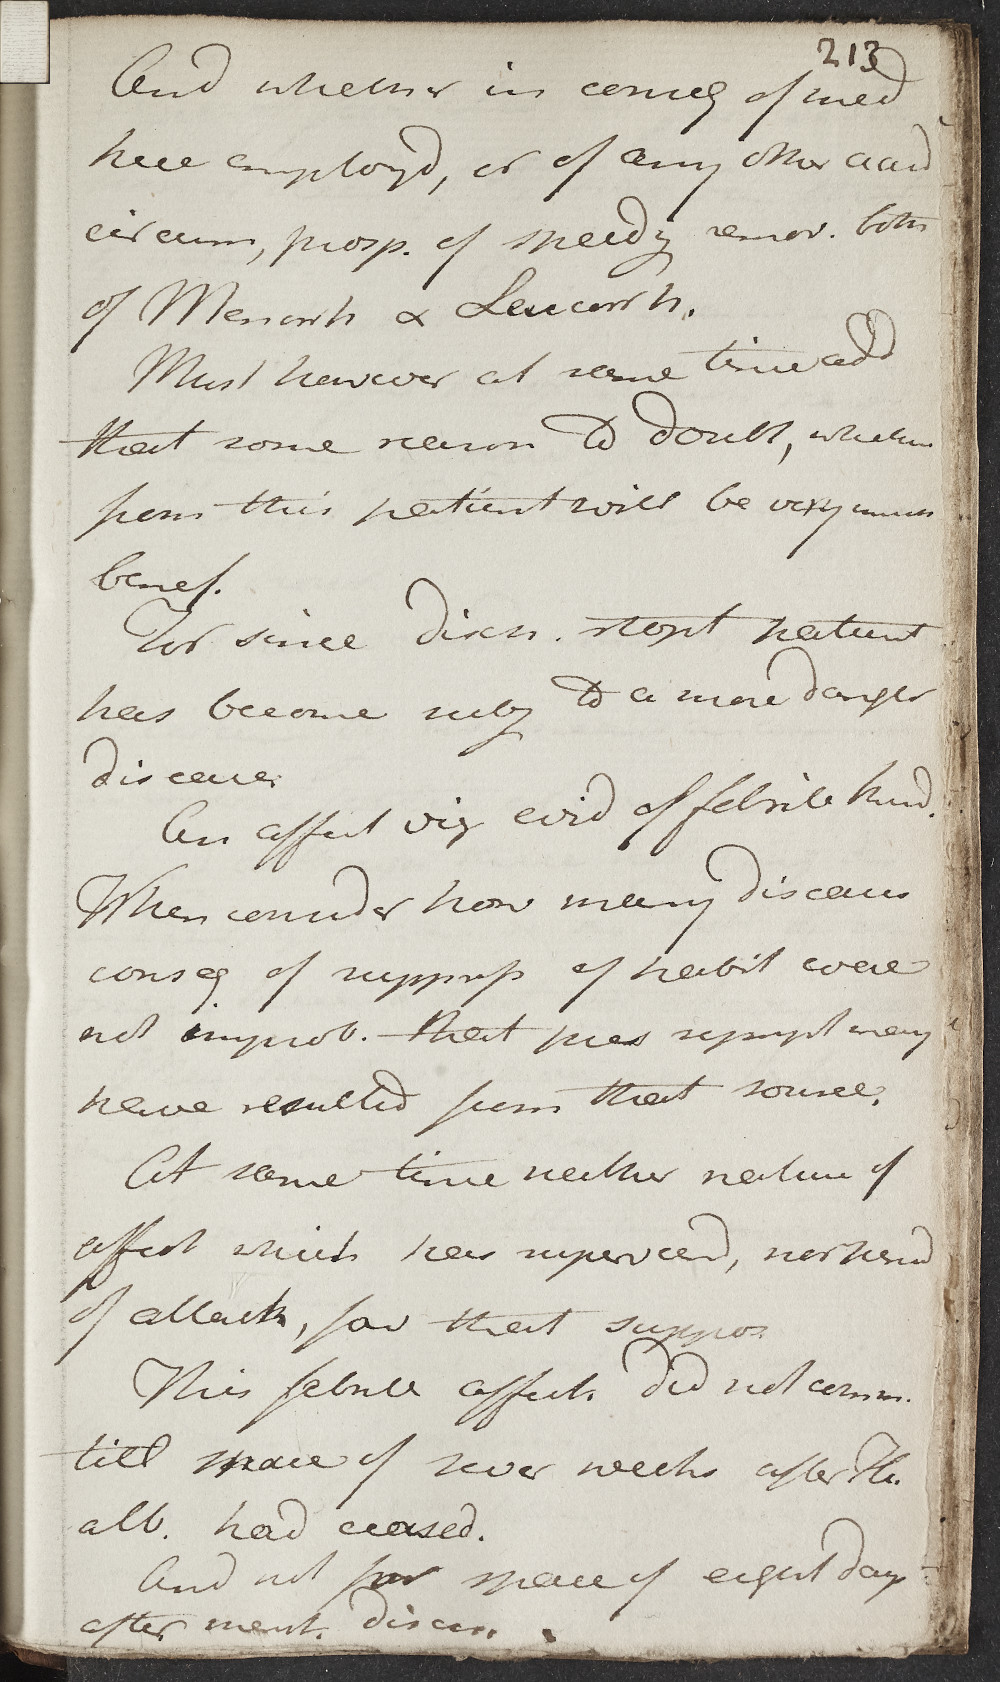 213
And whether in conseq of med
here employd, or of any other accid
circum, prosp. of speedy remov. both
of Menorrh & Leucorrh.
Must however at same time add
that some reason to doubt, whether
from this patient will be very much
benef.
For since disch. stopt patient
has become subj to a more danger
disease
An affect vig evid of febrile kind.
When consider how many diseases
conseq of suppress of habit evac
not improb. that pres sympt may
have resulted from that source.
At same time neither nature of
affect which has supervend, nor kind
of attack, fav that suppos
This febrile affect. did not comm.
till space of sever weeks after Fl.
alb. had ceased.
And not for space of eight days
after menst. discon.